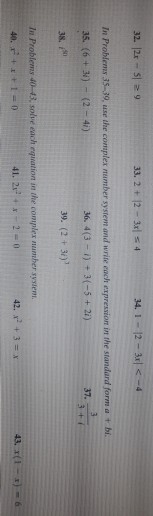 32. |2x − 5| ≥ 9 33. 2 + |2 − 3x| ≤ 4 34. 1 − |2 − 3x| < −4
In Problems 35–39, use the complex number system and write each expression in the standard form a + bi.
35. (6 + 3i) − (2 − 4i) 36. 4(3 − i) + 3(−5 + 2i) 37. 3/(3 + i)
38. i⁵⁰ 39. (2 + 3i)³
In Problems 40–43, solve each equation in the complex number system.
40. x² + x + 1 = 0 41. 2x² + x − 2 = 0 42. x² + 3 = x 43. x(1 − x) = 6